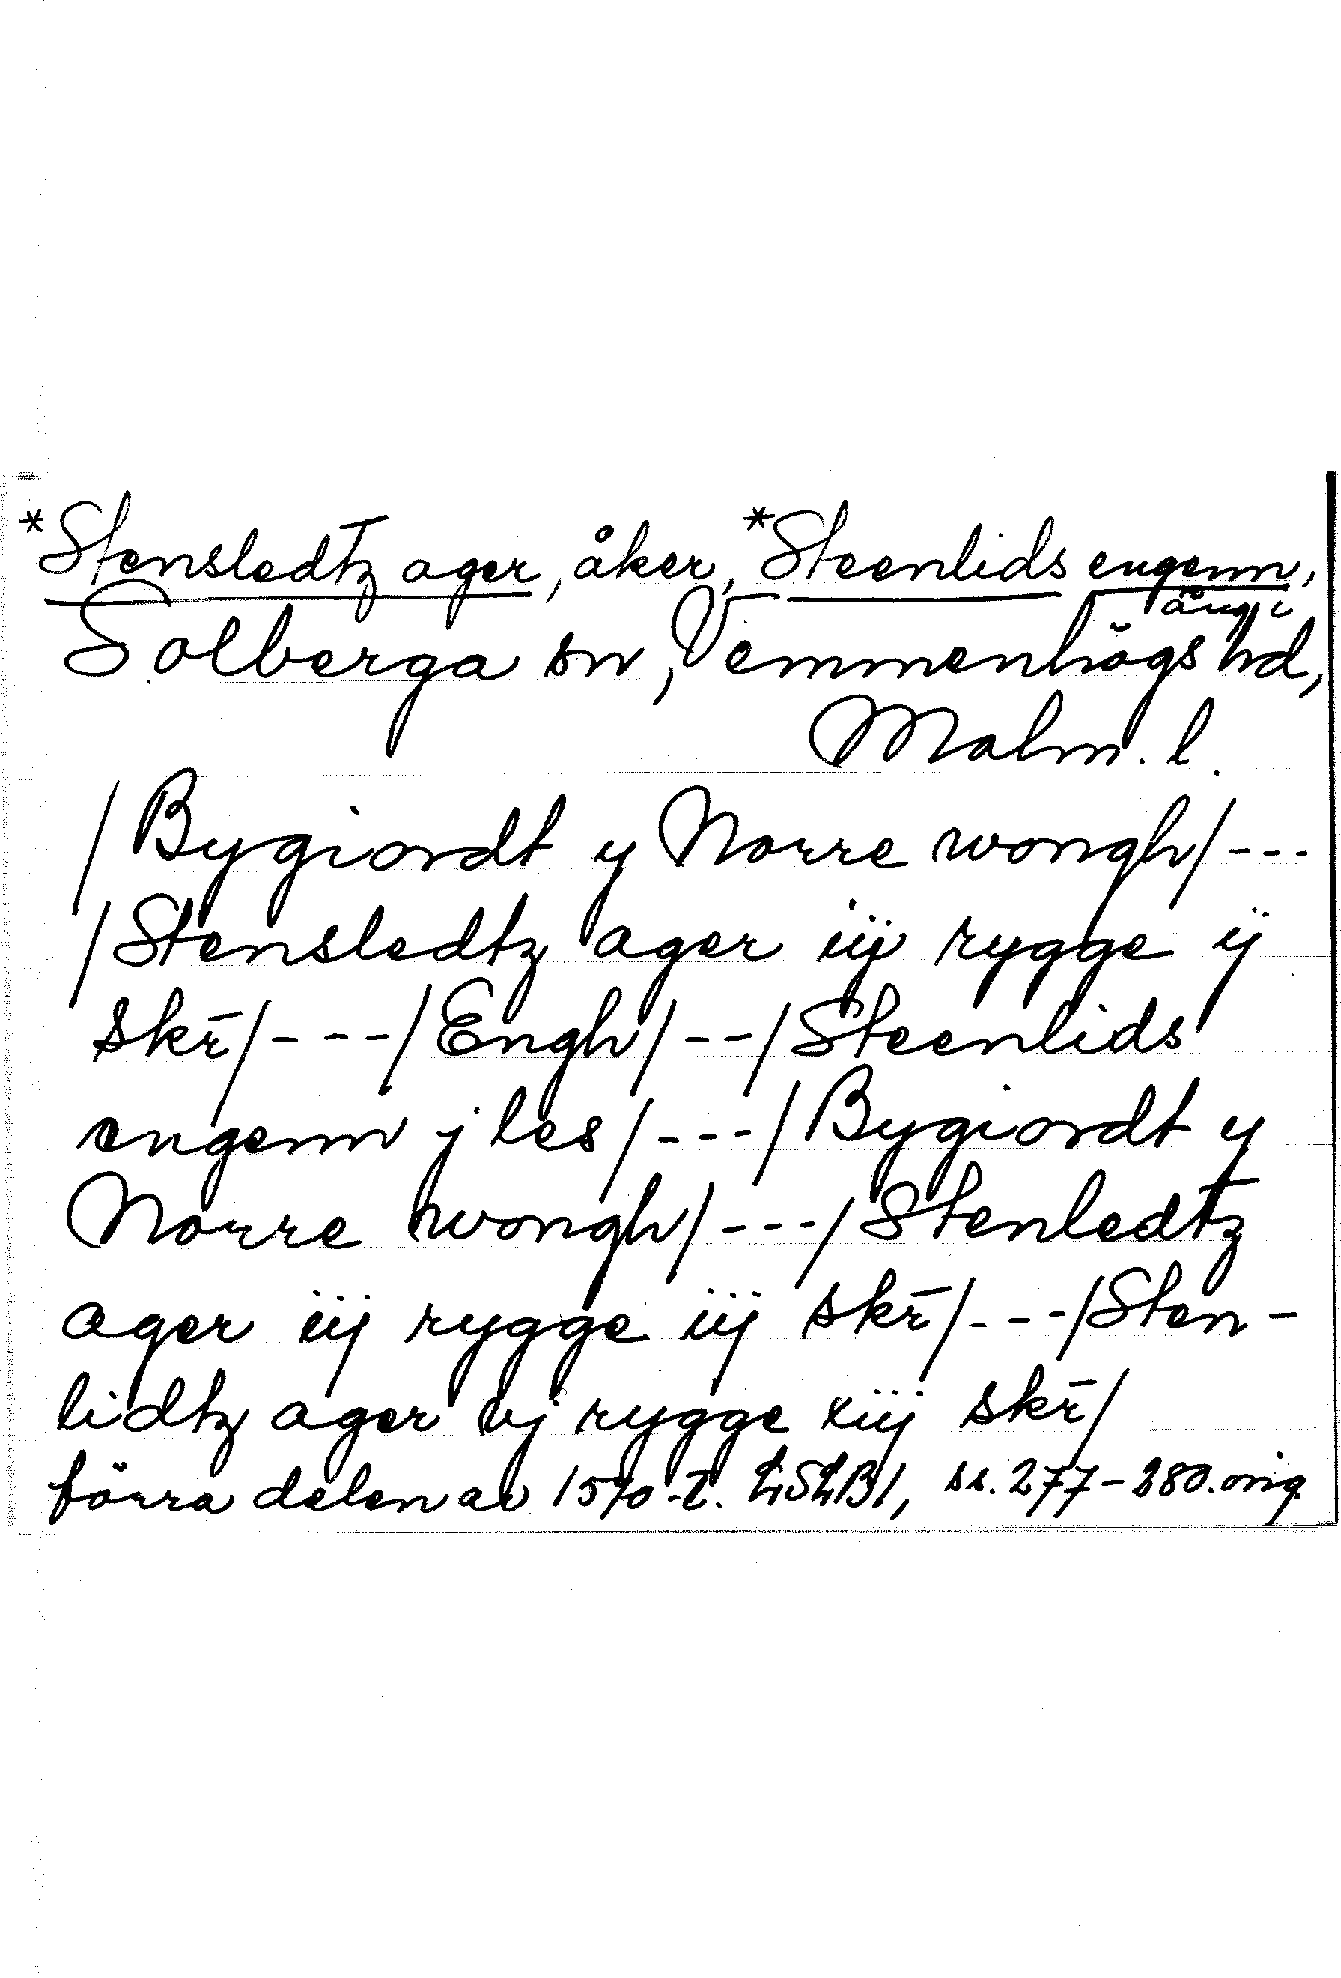 *Stensledtz ager, åker, *Steenlids engenn,
äng i
Solberga sn, Vemmenhögs hd,
Malm. l.
/Bygiordt y Norre wongh/---
/Stensledtz ager iij rygge ij
skr̄/---/Engh/--/Steenlids
engenn j les/---/Bygiordt y
Norre wongh/---/Stenledtz
ager iij rygge iij skr̄/---/Sten-
lidtz ager vj rygge xiij skr̄/
förra delen av 1570-t. LSLB1, ss. 277-280. orig.